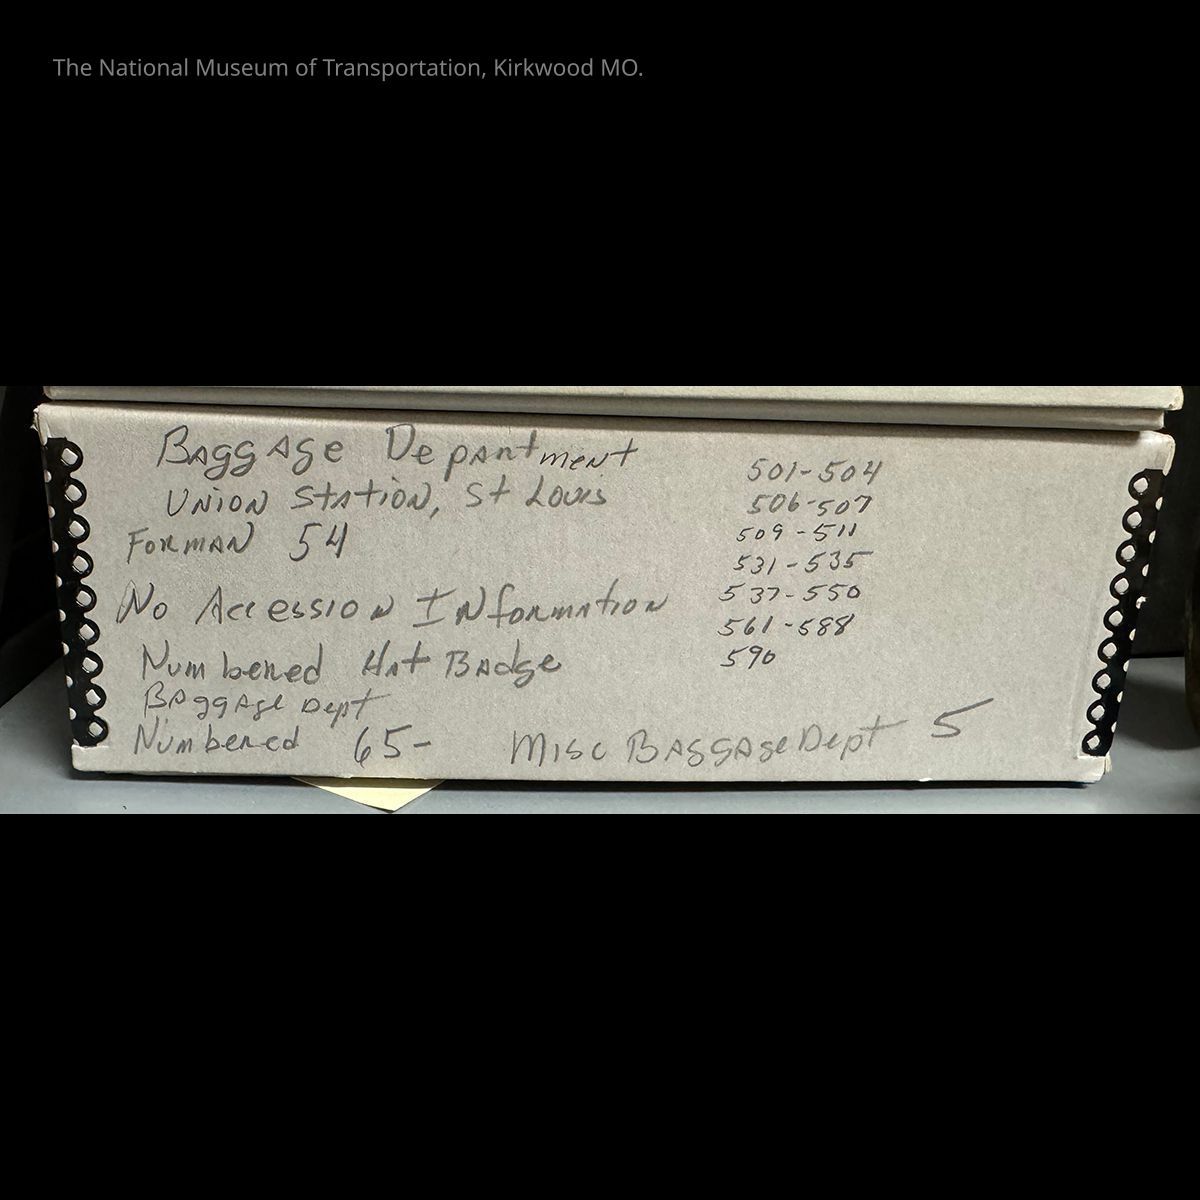 The National Museum of Transportation, Kirkwood MO.
Baggage Department
Union Station, St Louis
Forman 54
No Accession Information
Numbered Hat Badge
Baggage Dept
Numbered 65-
Misc Baggage Dept 5
501-504
506-507
509-511
531-535
537-550
561-588
590